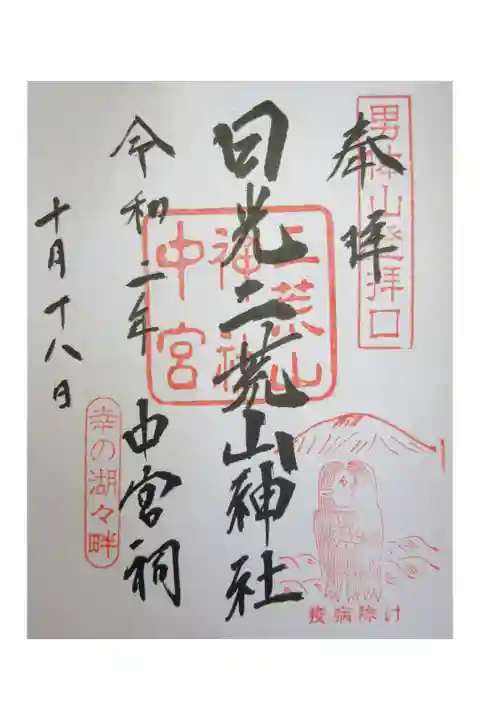 奉拝
男体山登拝口
日光二荒山神社
二荒山
神社
中宮
令和二年 中宮祠
十月十八日
幸の湖々畔
疫病除け